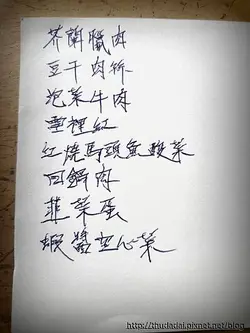 芥蘭臘肉
豆干肉絲
泡菜牛肉
雪裡紅
紅燒馬頭魚酸菜
回鍋肉
韮菜蛋
蝦醬空心菜
http://thudadai.pixnet.net/blog